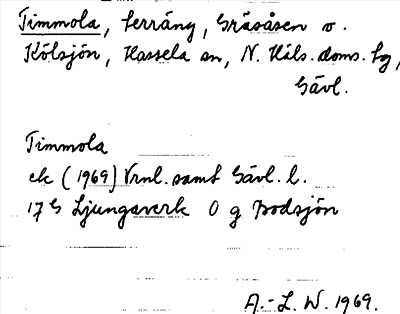 Timmola, terräng, Gräsåsen o.
Kölsjön, Hassela sn, N. Häls. doms. lg,
Gävl.
Timmola
ek (1969) Vrnl. samt Gävl. l.
17 G Ljungaverk 0 g Bodsjön
A.-L. W. 1969.